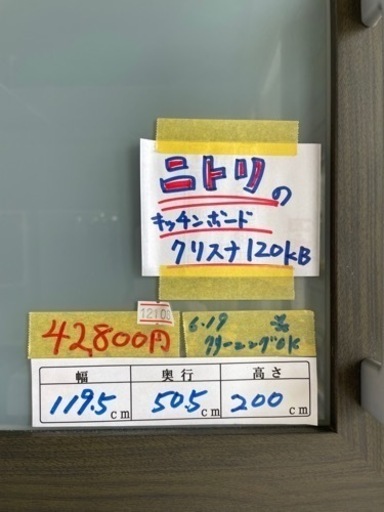 ニトリの
キッチンボード
クリスナ120KB
42,800円
6.19
クリーニングOK
幅 奥行 高さ
119.5cm 50.5cm 200cm